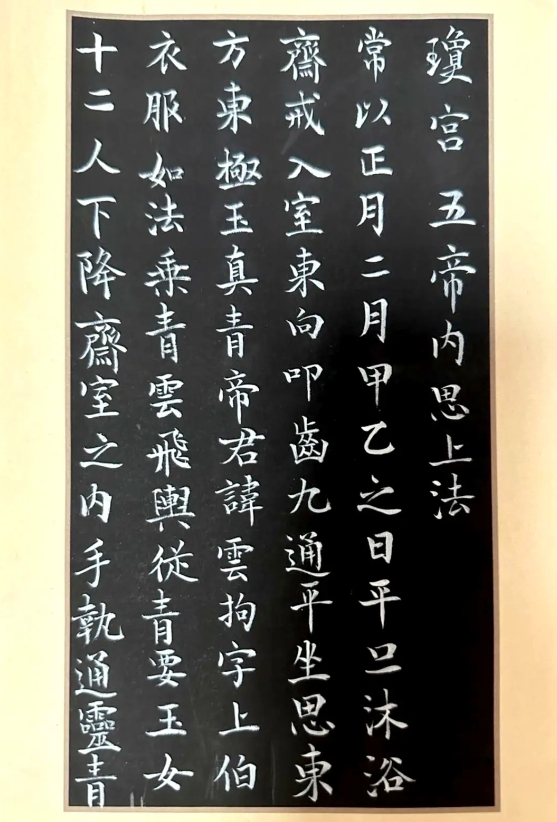 瓊宮五帝内思上法
常以正月二月甲乙之日平旦沐浴
齋戒入室東向叩齒九通平坐思東
方東極玉真青帝君諱雲拘字上伯
衣服如法乗青雲飛輿従青要玉女
十二人下降齋室之内手執通靈青